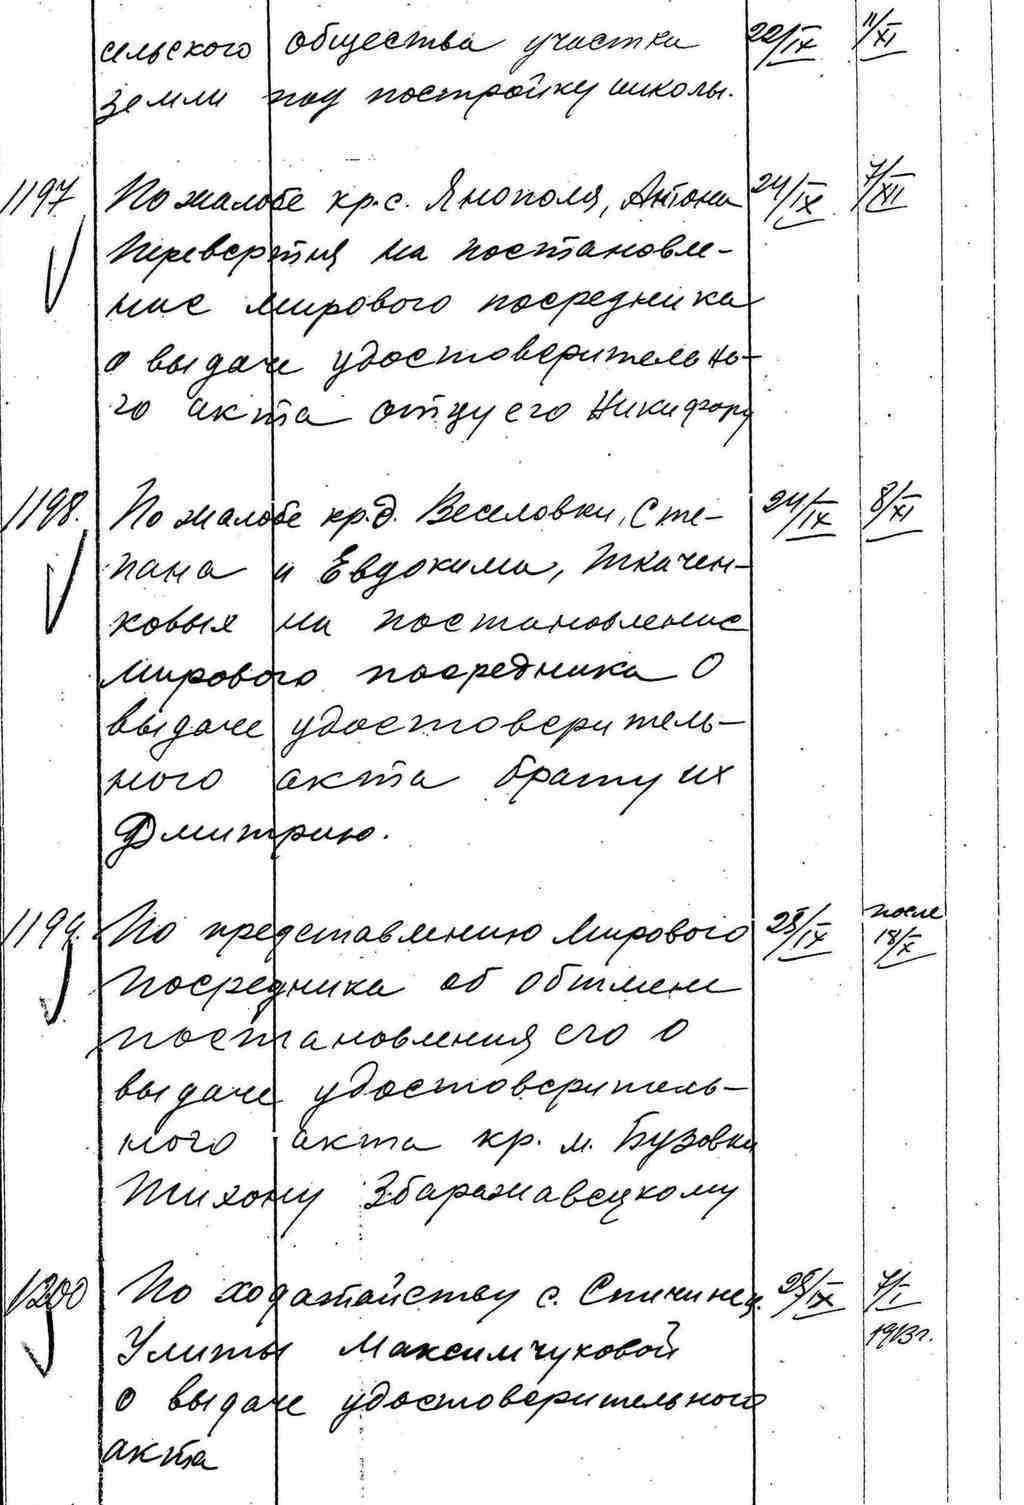 сельского общества участка 22/IX 11/XI
земли под постройку школы.
1197 По жалобе кр. с. Янополя, Антона 24/IX 7/XII
Перевертня на постановле-
ние мирового посредника
о выдаче удостоверительно-
го акта отцу его Никифору
1198. По жалобе кр. д. Веселовки, Сте- 24/IX 8/XI
пана и Евдокима, Ткачен-
ковых на постановление
мирового посредника о
выдаче удостоверитель-
ного акта брату их
Дмитрию.
1199. По представлению Мирового 25/IX после
Посредника об отмене 18/X
постановления его о
выдаче удостоверитель-
ного акта кр. м. Бузовки
Тихону Збаражавецкому
1200 По ходатайству с. Спичинец. 25/IX 7/I
Улиты Максимчуковой 1913 г.
о выдаче удостоверительного
акта